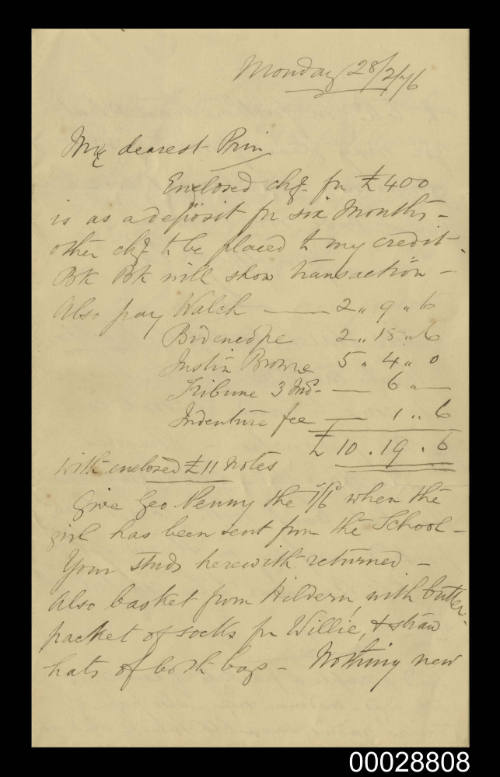 Monday 28/2/76
My dearest Prin
Enclosed chq. for £400
is as a deposit for six Months -
other chq. to be placed to my credit.
Bk Bk will show transaction -
Also pay Walch — 2 " 9 " 6
2 " 15 " 6
Justin Browne 5 " 4 " 0
Tribune 3 Mos. — 6 " —
Indenture fee — 1 " 6
£ 10 . 19 . 6
with enclosed £11 notes
Give Geo Penny the 7/6 when the
girl has been sent from the School -
Your studs herewith returned -
Also basket from Hildern, with butter.
packet of socks for Willie, & straw
hats of both boys - Nothing new
00028808